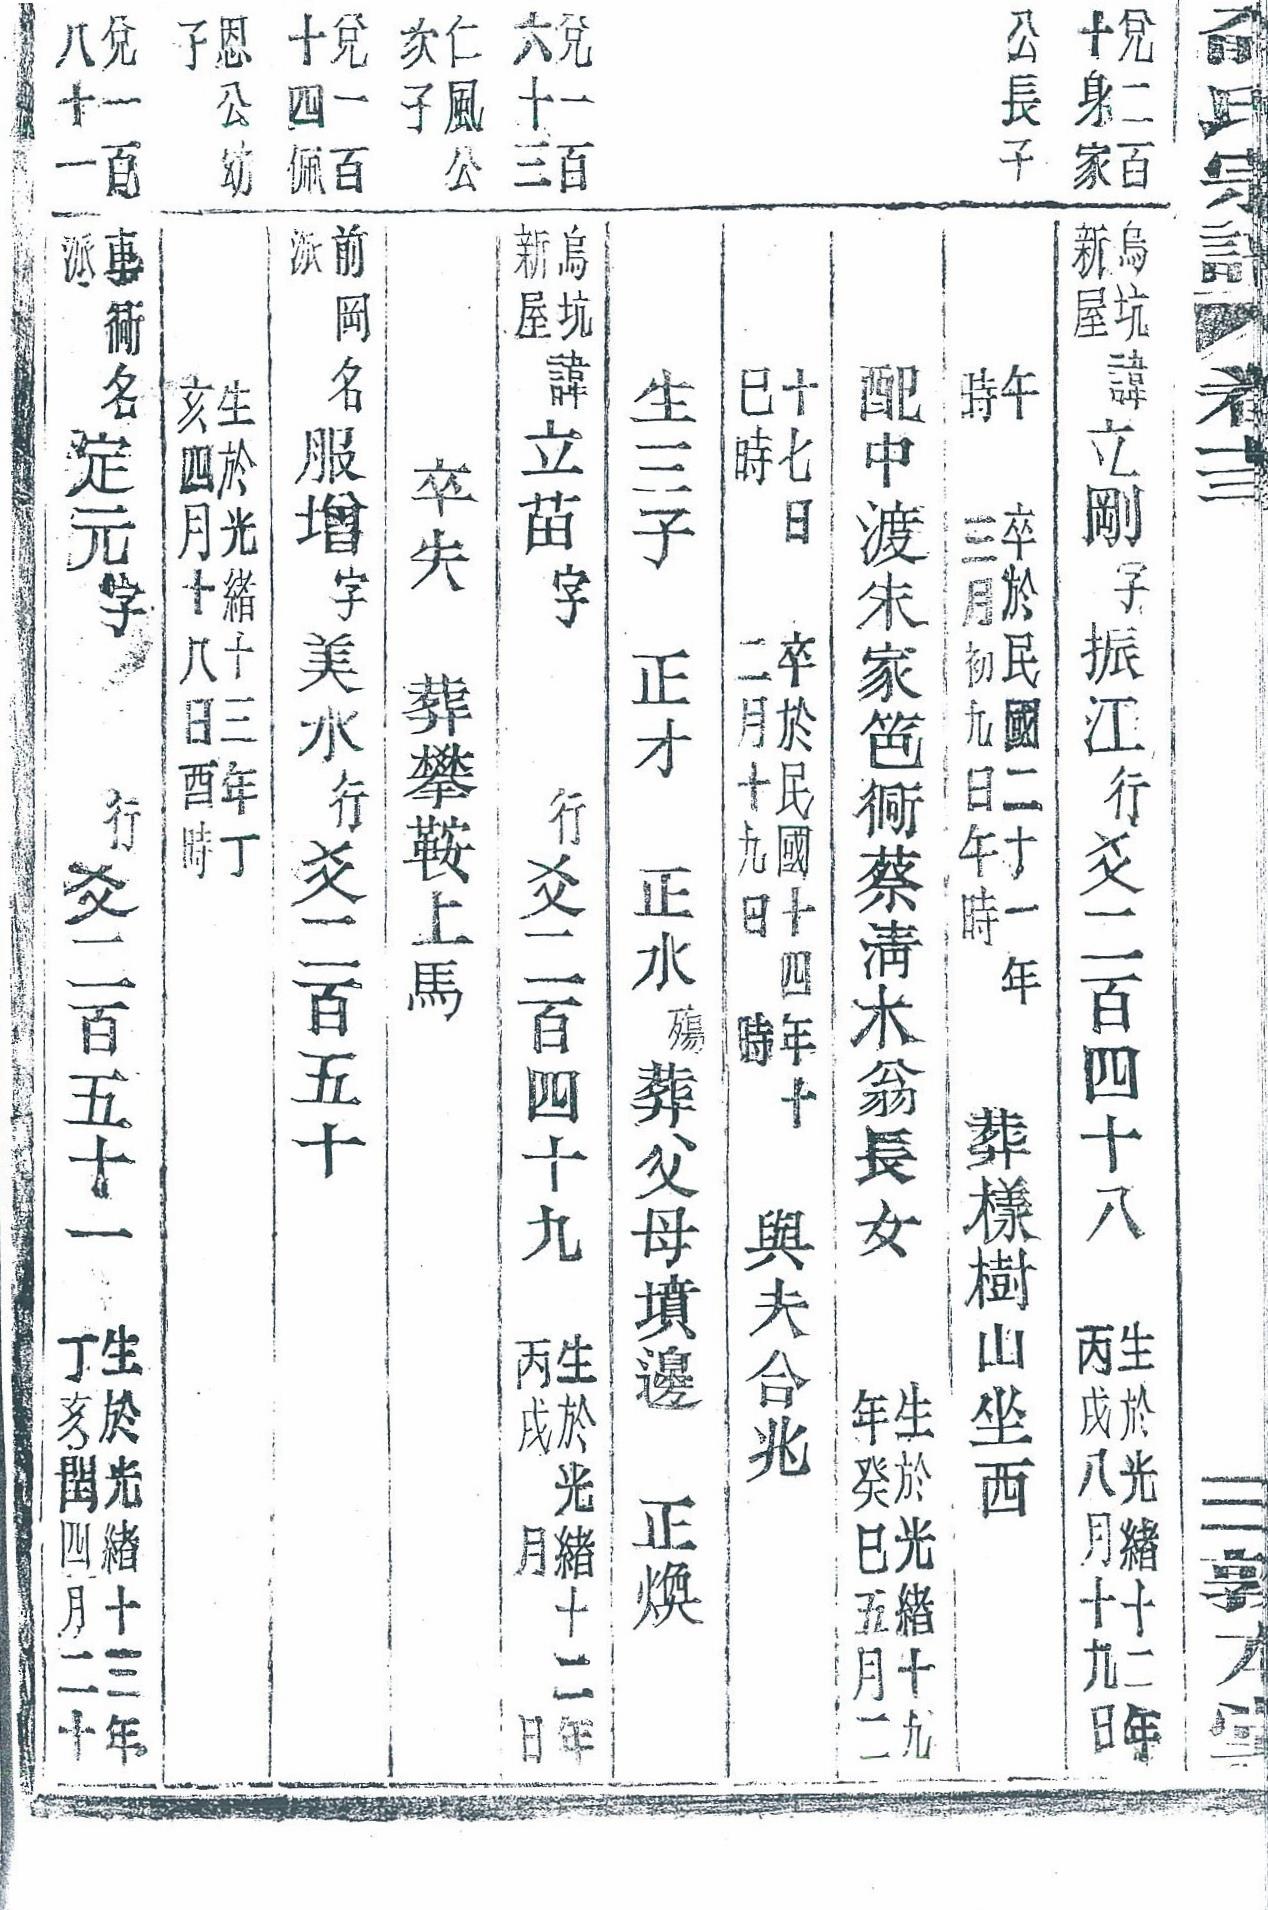 氏宗譜 卷三 三 敦本堂
兌二百
十身家
公長子
烏坑
新屋
諱立剛字振江行爻二百四十八
生於光緒十二年
丙戌八月十九日
午
時
卒於民國二十一年
三月初九日午時
葬樣樹山坐西
配中渡朱家笆衕蔡淸木翁長女
生於光緒十九
年癸巳五月二
十七日
巳時
卒於民國十四年十
二月十九日 時
與夫合兆
生三子 正才 正水殤葬父母墳邊 正煥
兌一百
六十三
仁風公
次子
烏坑
新屋
諱立苗字 行爻二百四十九
生於光緒十二年
丙戌 月 日
卒失 葬攀鞍上馬
兌一百
十四佩
恩公幼
子
前岡
派
名服增字美水行爻二百五十
生於光緒十三年丁
亥四月十八日酉時
兌一百
八十一
車衕
派
名定元字 行爻二百五十一
生於光緒十三年
丁亥閏四月二十